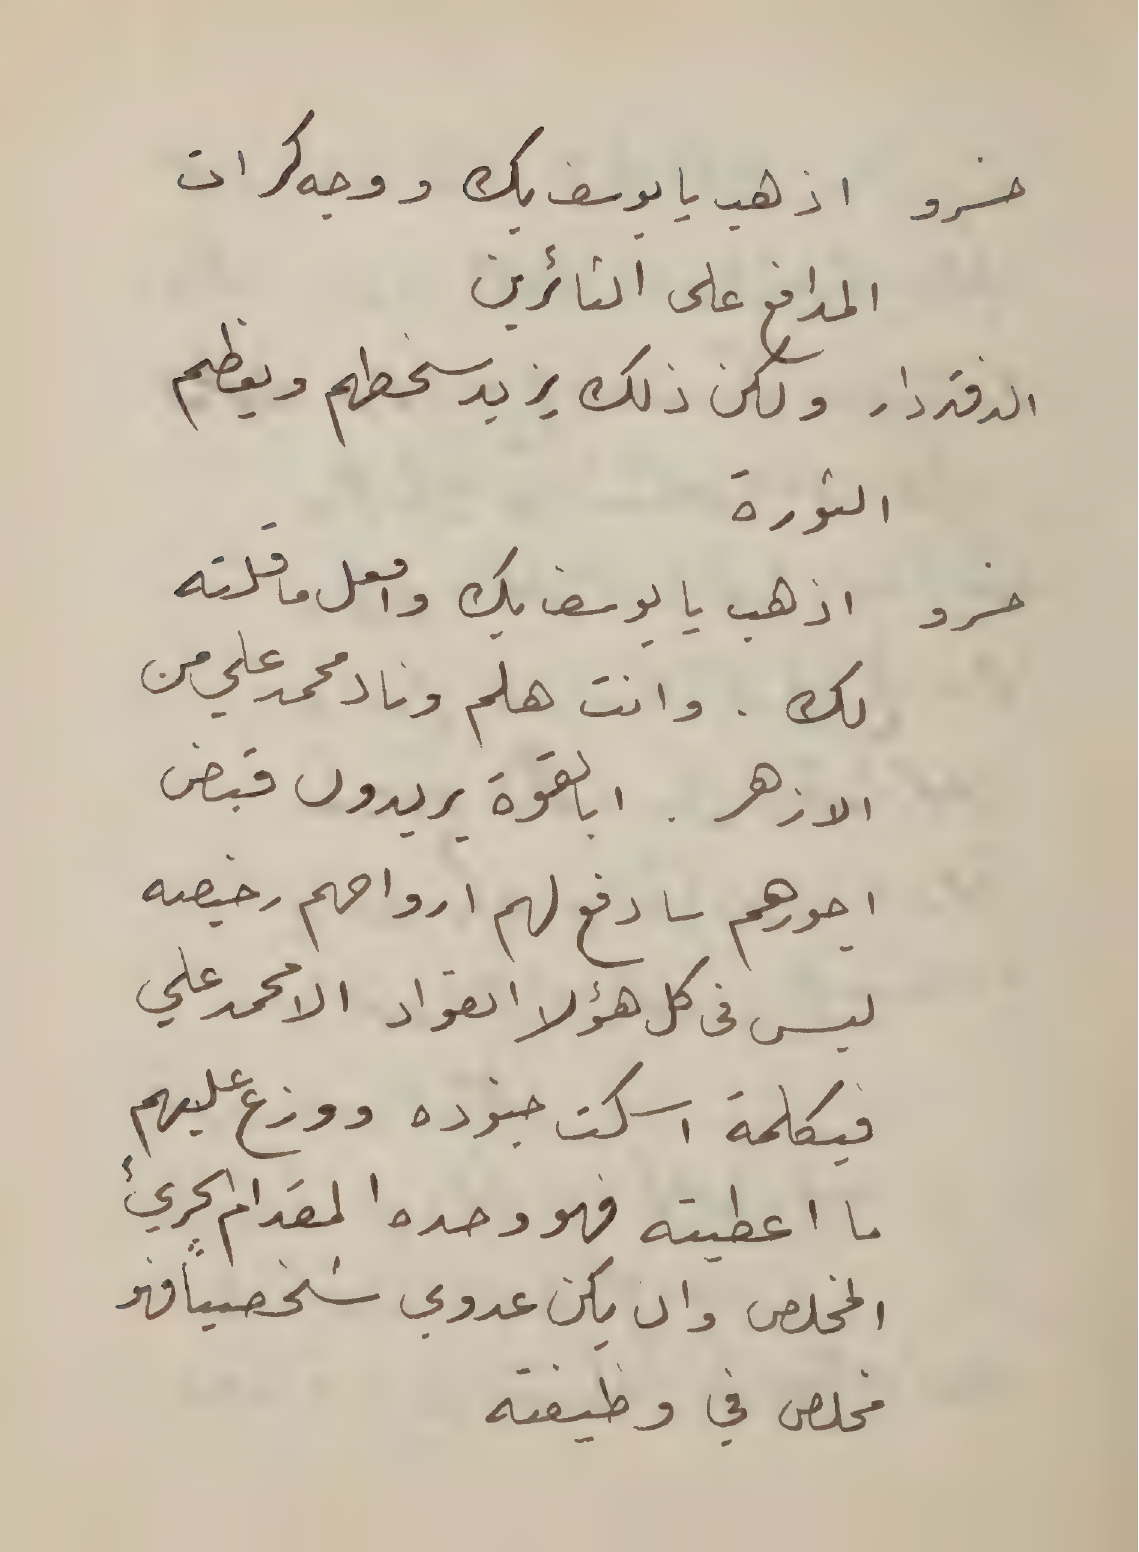 خسرو اذهب يا يوسف بك ووجه كرات
المدافع على الثائرين
الدفتردار ولكن ذلك يزيد سخطهم ويعظم
الثورة
خسرو اذهب يا يوسف بك وافعل ما قلته
لك . وانت هلم وناد محمد علي من
الازهر . ابالقوة يريدون قبض
اجورهم سادفع لهم ارواحهم رخيصه
ليس فى كل هؤلا القواد الا محمد علي
فبكلمة اسكت جنوده ووزع عليهم
ما اعطيته فهو وحده المقدام الجريئ
المخلص وان يكن عدوي شخصياً فهو
مخلص في وظيفته